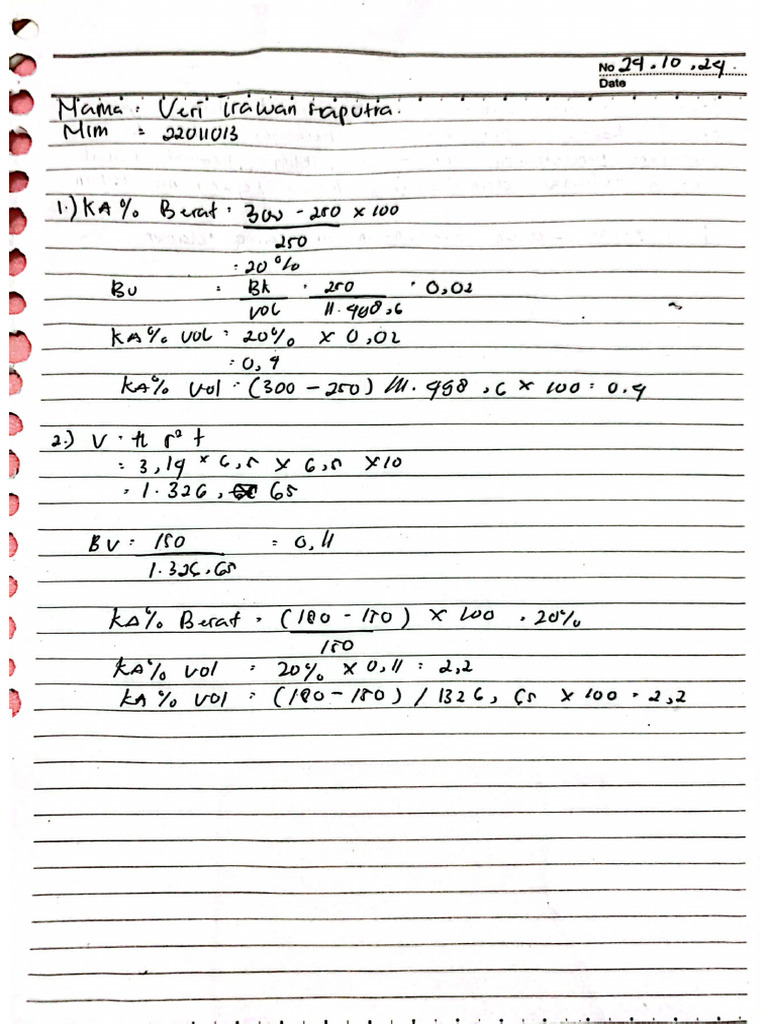 No 24.10.24
Date
Nama : Veri Irawan Saputra.
Nim = 22011013
1.) KA% Berat = 300 - 250 x 100
250
= 20%
BV = BK = 250 = 0,02
Vol 11.498,6
KA% Vol = 20% x 0,02
= 0,4
KA% Vol = (300 - 250) / 11.498,6 x 100 = 0.4
2.) V = π r² t
= 3,14 x 6,5 x 6,5 x 10
= 1.326,65
BV = 150 = 0,11
1.326,65
KA% Berat = (180 - 150) x 100 = 20%
150
KA% Vol = 20% x 0,11 = 2,2
KA% Vol = (180 - 150) / 1326,65 x 100 = 2,2